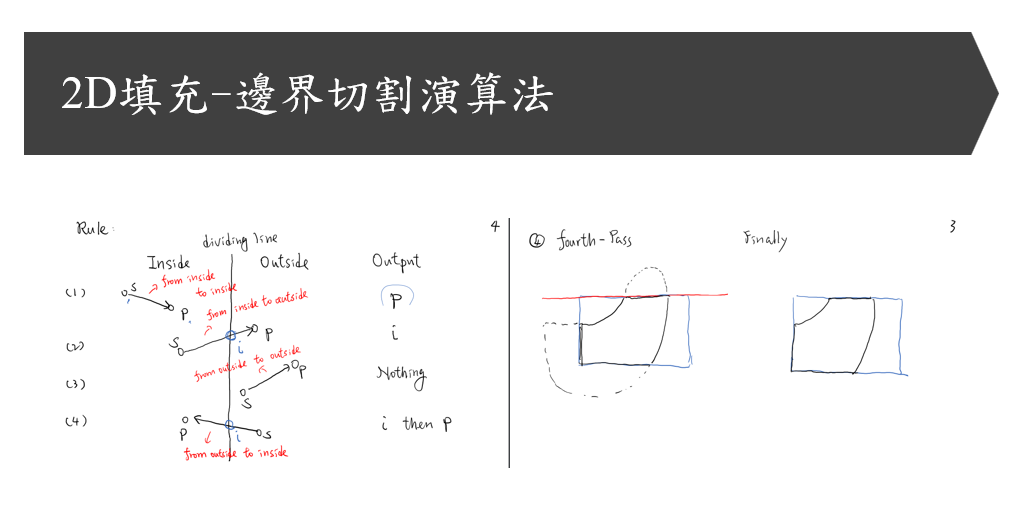 2D填充-邊界切割演算法
Rule:
4
dividing line
Inside
Outside
Output
(1)
S
from inside
to inside
P
P
from inside to outside
(2)
S
i
P
i
from outside to outside
(3)
S
P
Nothing
(4)
P
i
S
i then P
from outside to inside
3
④ fourth-Pass
Finally